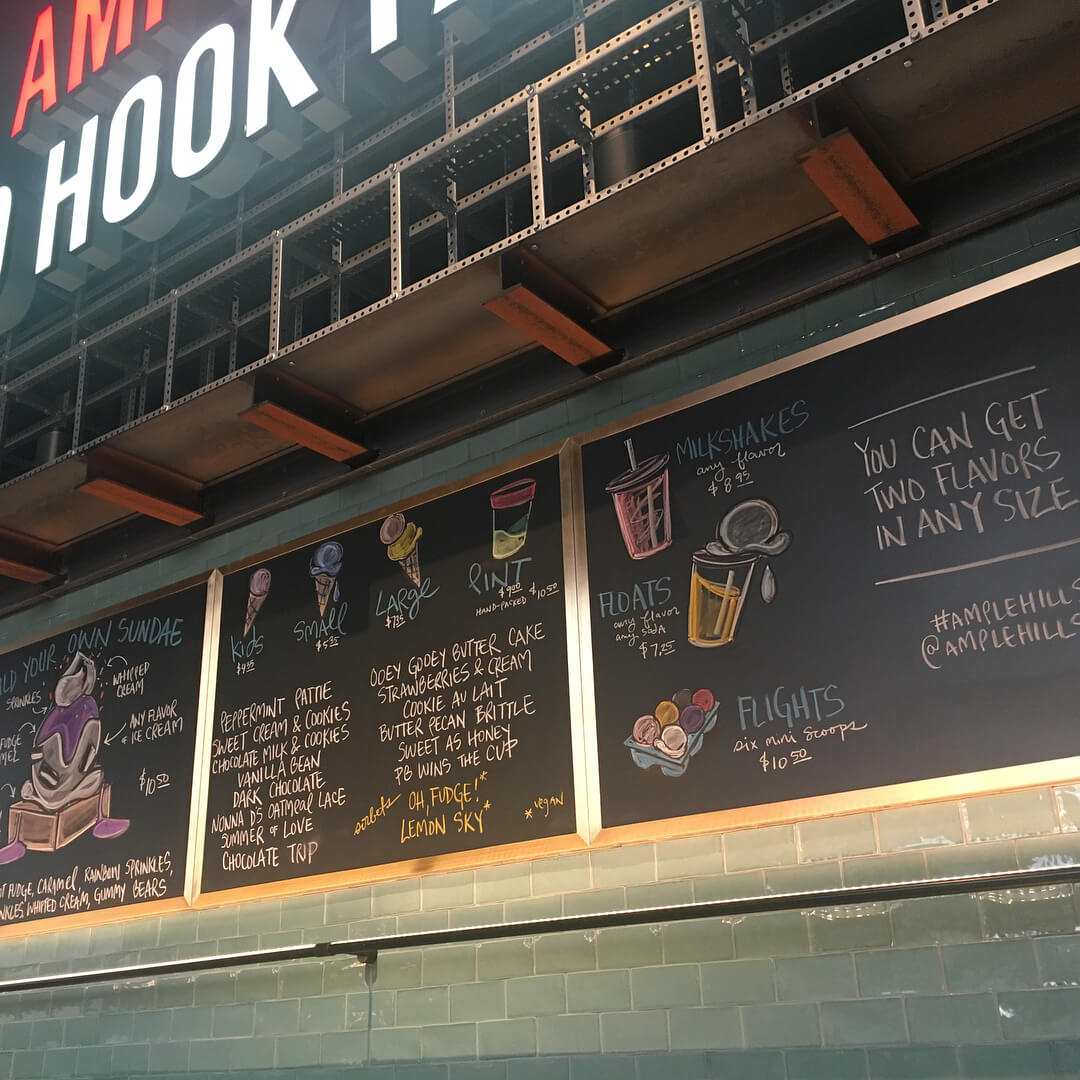 HOOK
OWN SUNDAE
SPRINKLES
WHIPPED
CREAM
ANY FLAVOR
OF ICE CREAM
FUDGE
$10.50
FUDGE, CARAMEL, RAINBOW SPRINKLES,
WHIPPED CREAM, GUMMY BEARS
KIDS
SMALL
$5.35
LARGE
PINT
$9.00
HAND-PACKED $10.50
PEPPERMINT PATTIE
SWEET CREAM & COOKIES
CHOCOLATE MILK & COOKIES
VANILLA BEAN
DARK CHOCOLATE
NONNA D'S OATMEAL LACE
SUMMER OF LOVE
CHOCOLATE TRIP
OOEY GOOEY BUTTER CAKE
STRAWBERRIES & CREAM
COOKIE AU LAIT
BUTTER PECAN BRITTLE
SWEET AS HONEY
PB WINS THE CUP
sorbets
OH, FUDGE!*
LEMON SKY*
*vegan
MILKSHAKES
any flavor
$8.95
FLOATS
any flavor
any soda
$7.25
FLIGHTS
six mini scoops
$10.50
YOU CAN GET
TWO FLAVORS
IN ANY SIZE
#AMPLEHILLS
@AMPLEHILLS